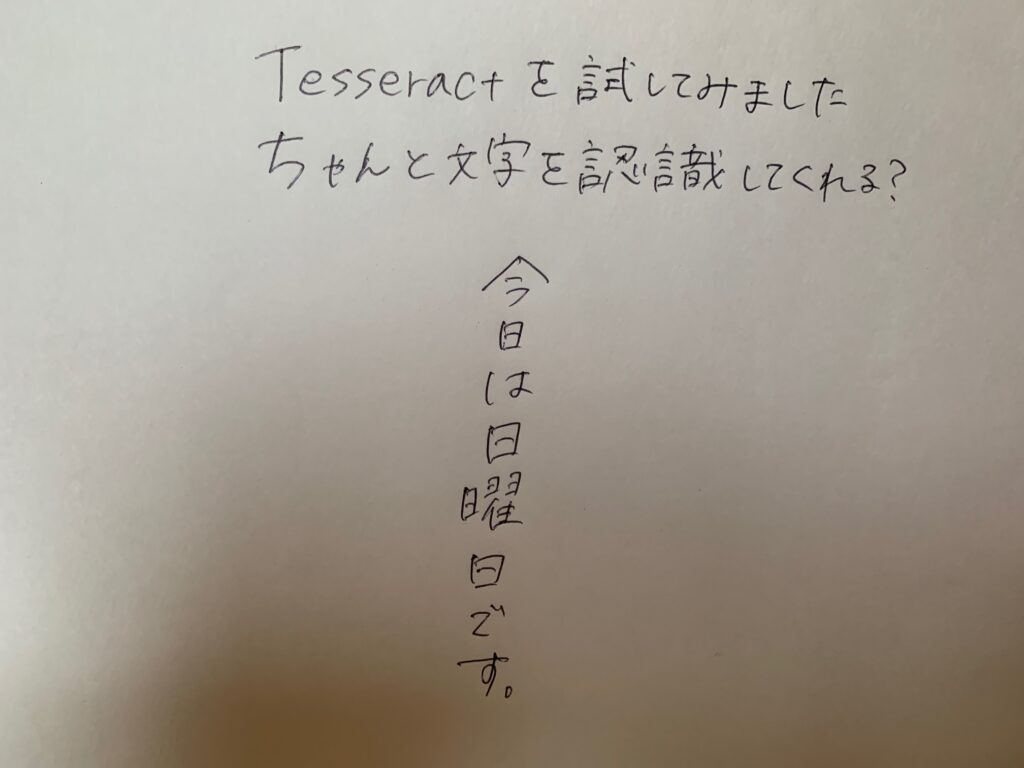 Tesseractを試してみました
ちゃんと文字を認識してくれる?
今日は日曜日です。